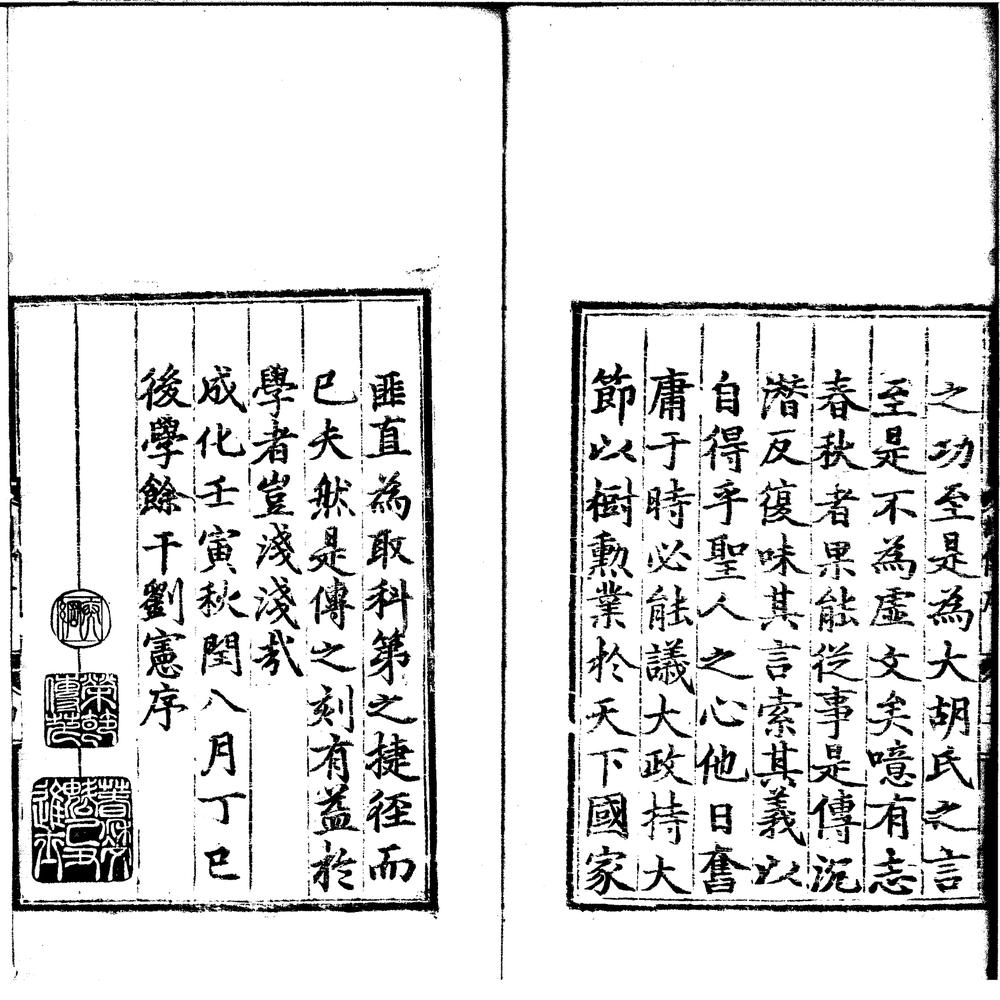 之功至是為大胡氏之言
至是不為虛文矣噫有志
春秋者果能從事是傳沉
潛反復味其言索其義以
自得乎聖人之心他日奮
庸于時必能議大政持大
節以樹勳業於天下國家
匪直為取科第之捷徑而
已夫然是傳之刻有益於
學者豈淺淺哉
成化壬寅秋閏八月丁巳
後學餘干劉憲序